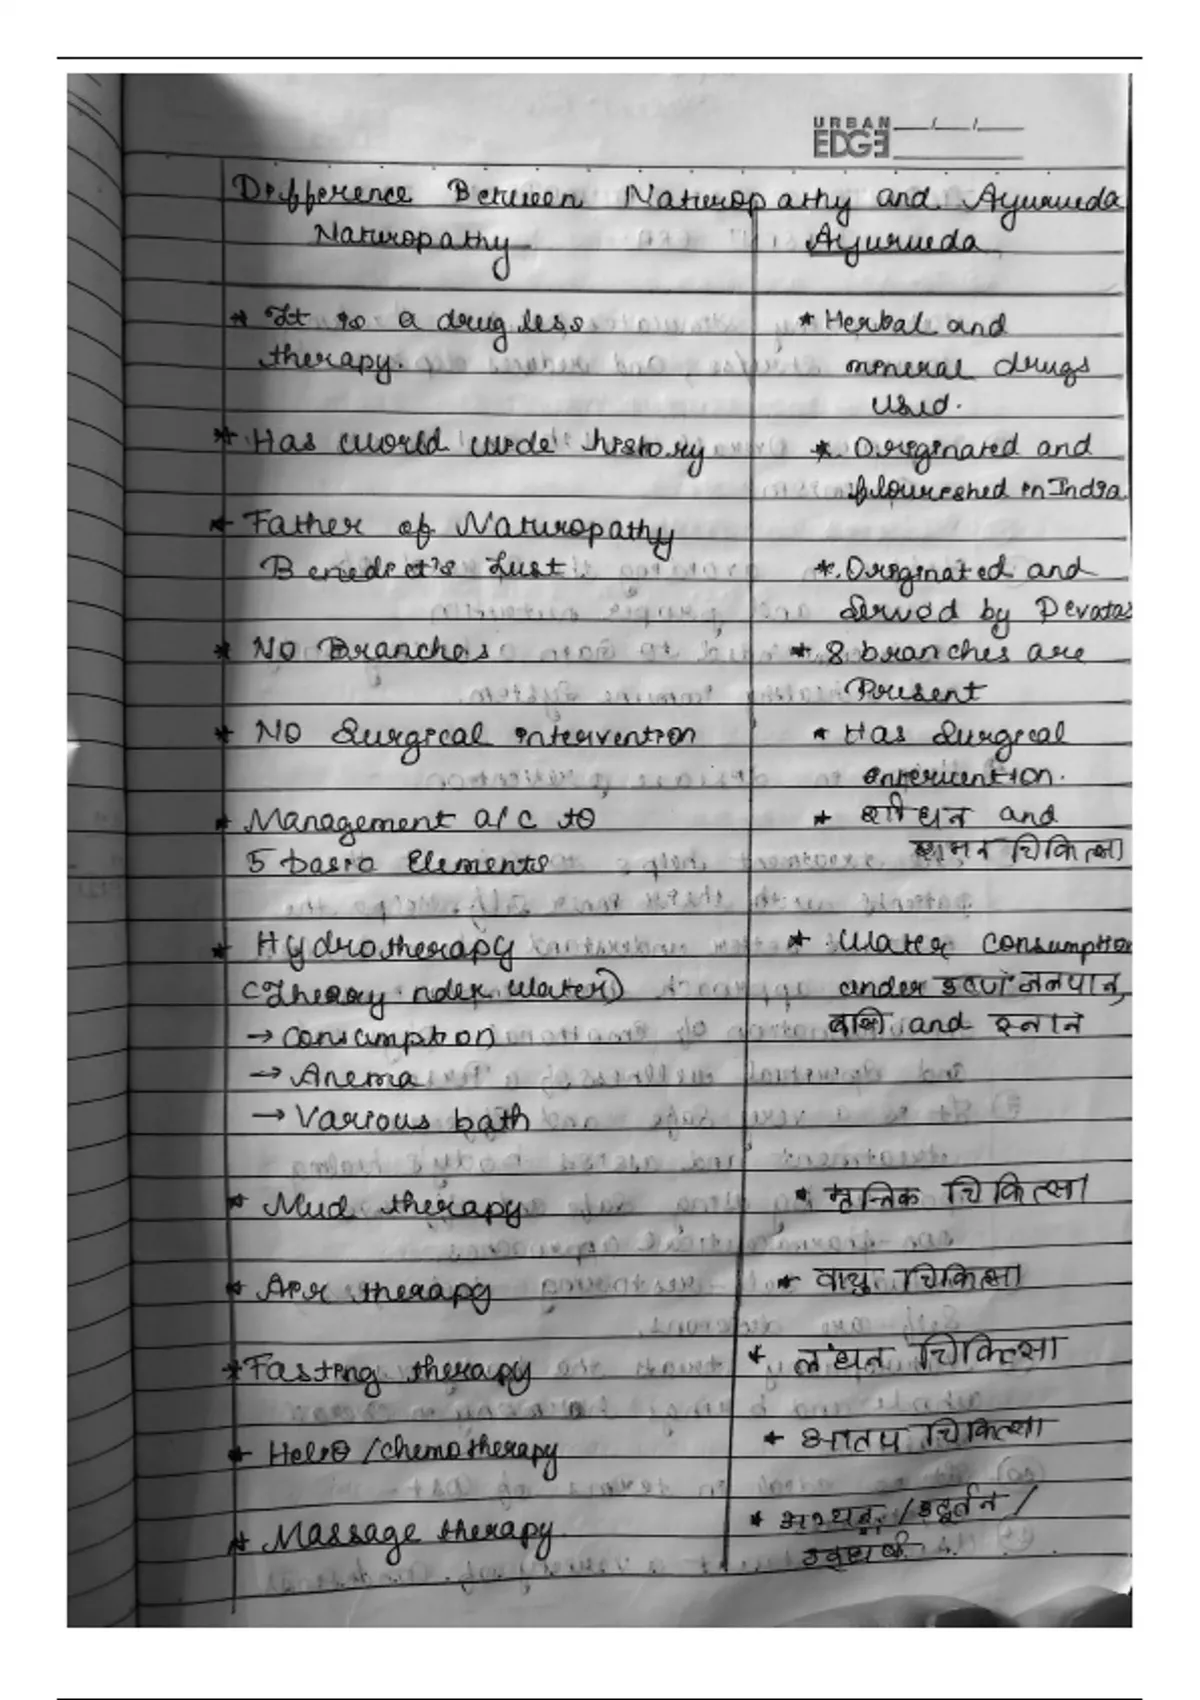 URBAN
EDGE
Difference Between Naturopathy and Ayurveda
Naturopathy Ayurveda
* It is a drugless * Herbal and
therapy. mineral drugs
used.
* Has world wide history * Originated and
flourished in India
* Father of Naturopathy
Benedict's Lust * Originated and
served by Devatas
* No Branches * 8 branches are
Present
* No Surgical intervention * Has Surgical
intervention.
* Management a/c to * शोधन and
5 basic Elements शमन चिकित्सा
* Hydrotherapy * Water consumption
(Theory nder water) under उष्ण जलपान,
→ consumption and स्नान
→ Anema
→ Various bath
* Mud therapy * चिकित्सा
* Air therapy * वायु चिकित्सा
* Fasting therapy * लंघन चिकित्सा
* Helio /chemotherapy * आतप चिकित्सा
* Massage therapy * / उद्वर्तन /